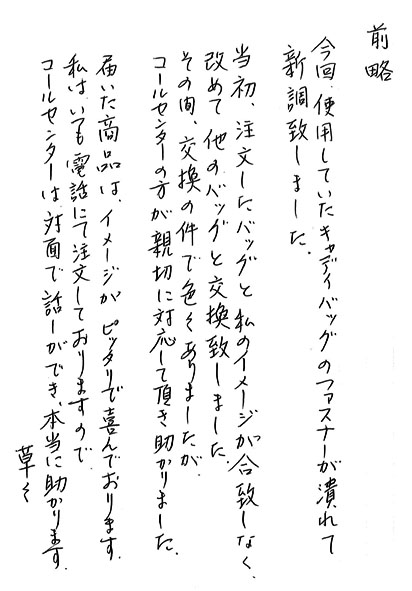 前略
今回、使用していたキャディバッグのファスナーが潰れて
新調致しました。
当初、注文したバッグと私のイメージが合致しなく、
改めて他のバッグと交換致しました。
その間、交換の件で色々ありましたが、
コールセンターの方が親切に対応して頂き助かりました。
届いた商品は、イメージがピッタリで喜んでおります。
私は、いつも電話にて注文しておりますので、
コールセンターは対面で話しができ、本当に助かります。
草々